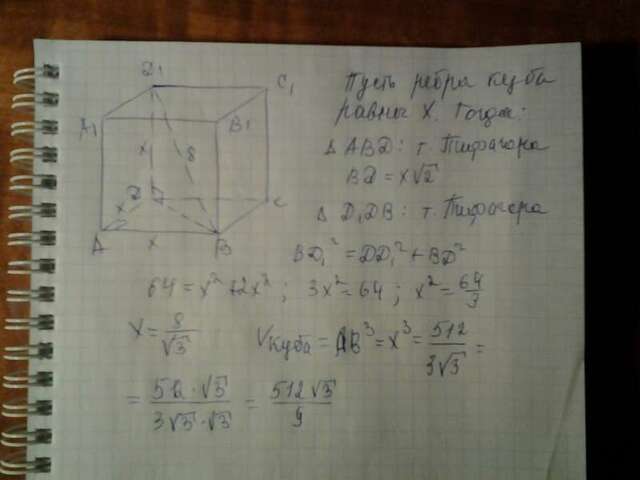 D₁
C₁
A₁
B₁
8
x
D
x
C
A
x
B
Пусть ребра куба
равны X. Тогда:
Δ ABD: т. Пифагора
BD = x√2
Δ D₁DB: т. Пифагора
BD₁² = DD₁² + BD²
64 = x² + 2x² ; 3x² = 64 ; x² = 64/3
x = 8/√3 Vкуба = AB³ = x³ = 512/3√3 =
= 512·√3/3√3·√3 = 512√3/9